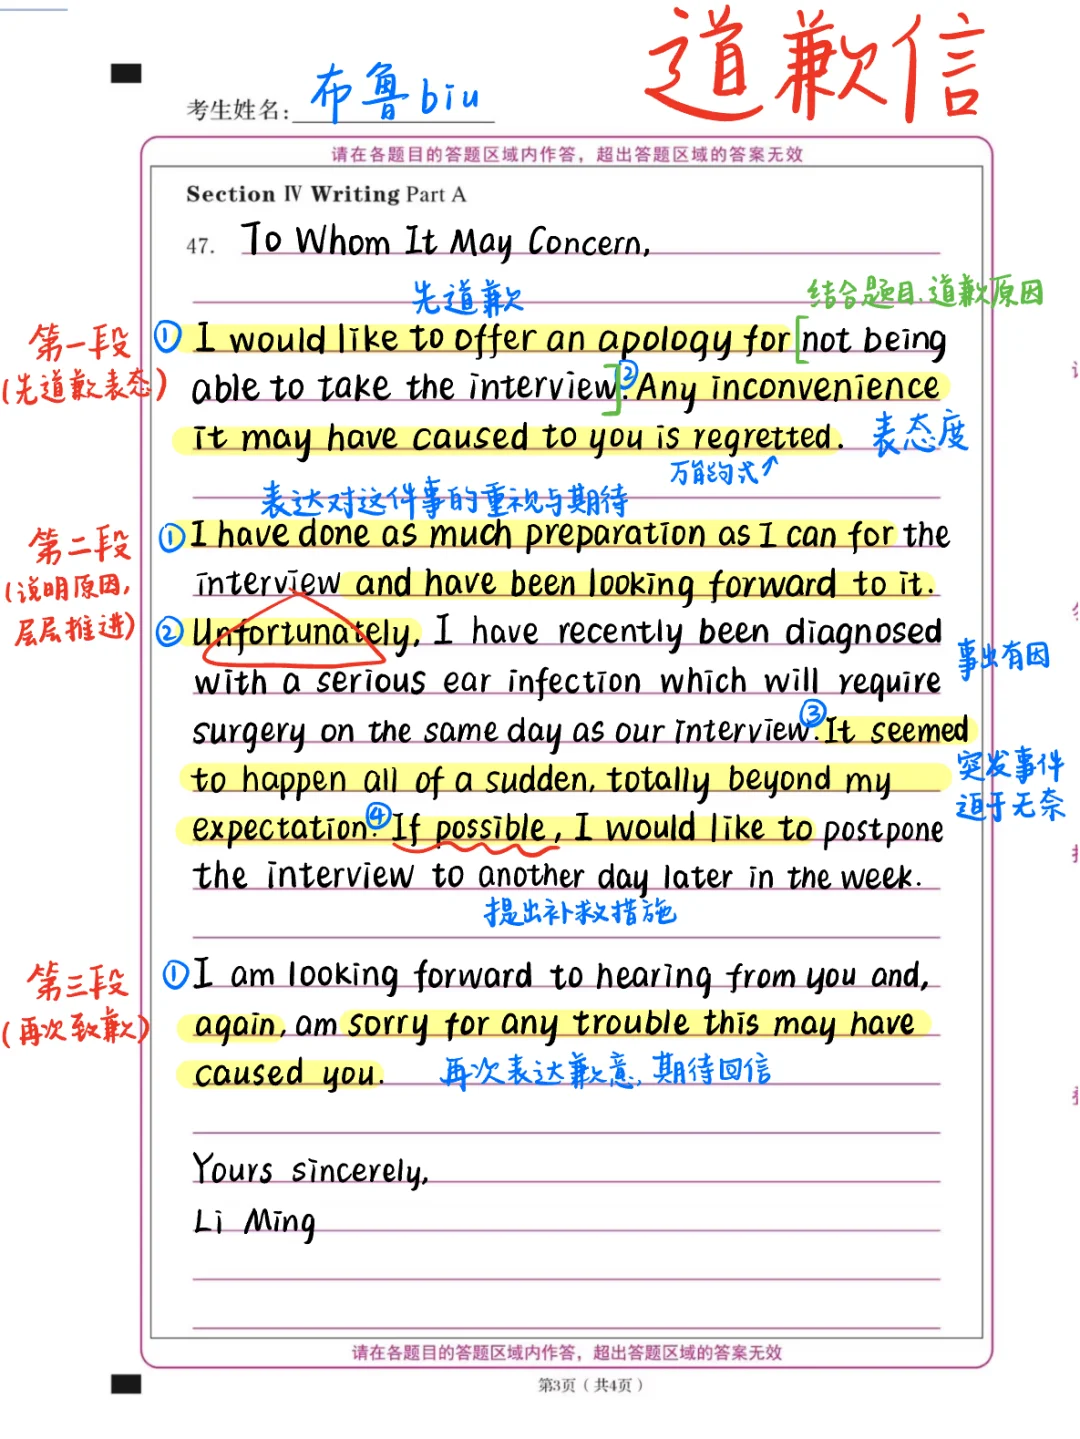 道歉信
考生姓名: 布鲁biu
请在各题目的答题区域内作答，超出答题区域的答案无效
Section Ⅳ Writing Part A
47. To Whom It May Concern,
先道歉
结合题目、道歉原因
第一段
(先道歉表态)
① I would like to offer an apology for [not being
able to take the interview]. ② Any inconvenience
it may have caused to you is regretted. 表态度
万能句式↑
表达对这件事的重视与期待
第二段
(说明原因,
层层推进)
① I have done as much preparation as I can for the
interview and have been looking forward to it.
② Unfortunately, I have recently been diagnosed
事出有因
with a serious ear infection which will require
surgery on the same day as our interview. ③ It seemed
突发事件
迫于无奈
to happen all of a sudden, totally beyond my
expectation. ④ If possible, I would like to postpone
the interview to another day later in the week.
提出补救措施
第三段
(再次致歉)
① I am looking forward to hearing from you and,
again, am sorry for any trouble this may have
caused you. 再次表达歉意,期待回信
Yours sincerely,
Li Ming
请在各题目的答题区域内作答，超出答题区域的答案无效
第3页（共4页）